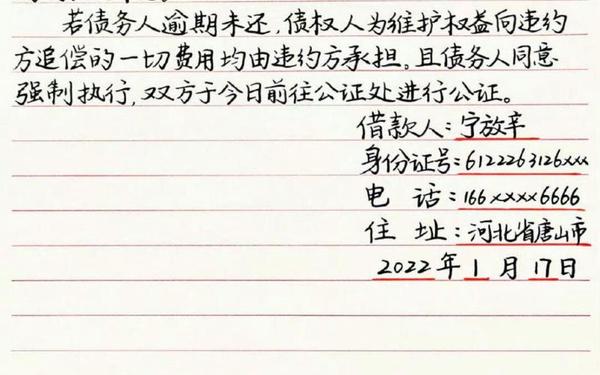 若债务人逾期未还,债权人为维护权益向违约
方追偿的一切费用均由违约方承担。且债务人同意
强制执行,双方于今日前往公证处进行公证。
借款人:宁放辛
身份证号:6122263126xxx
电 话:166xxxx6666
住 址:河北省唐山市
2022年1月17日